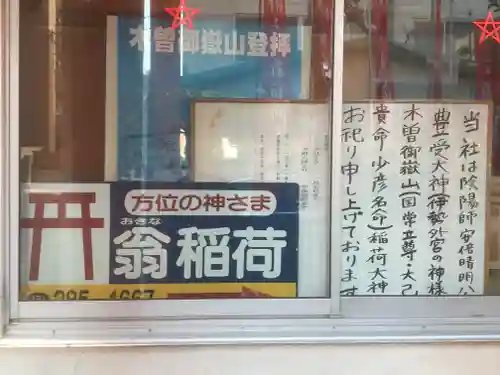 木曽御嶽山登拝
方位の神さま
おきな
翁稲荷
当社は陰陽師 安倍晴明公
豊受大神(伊勢外宮の神様
木曽御嶽山(国常立尊・大己
貴命 少彦名命)稲荷大神
お祀り申し上げております